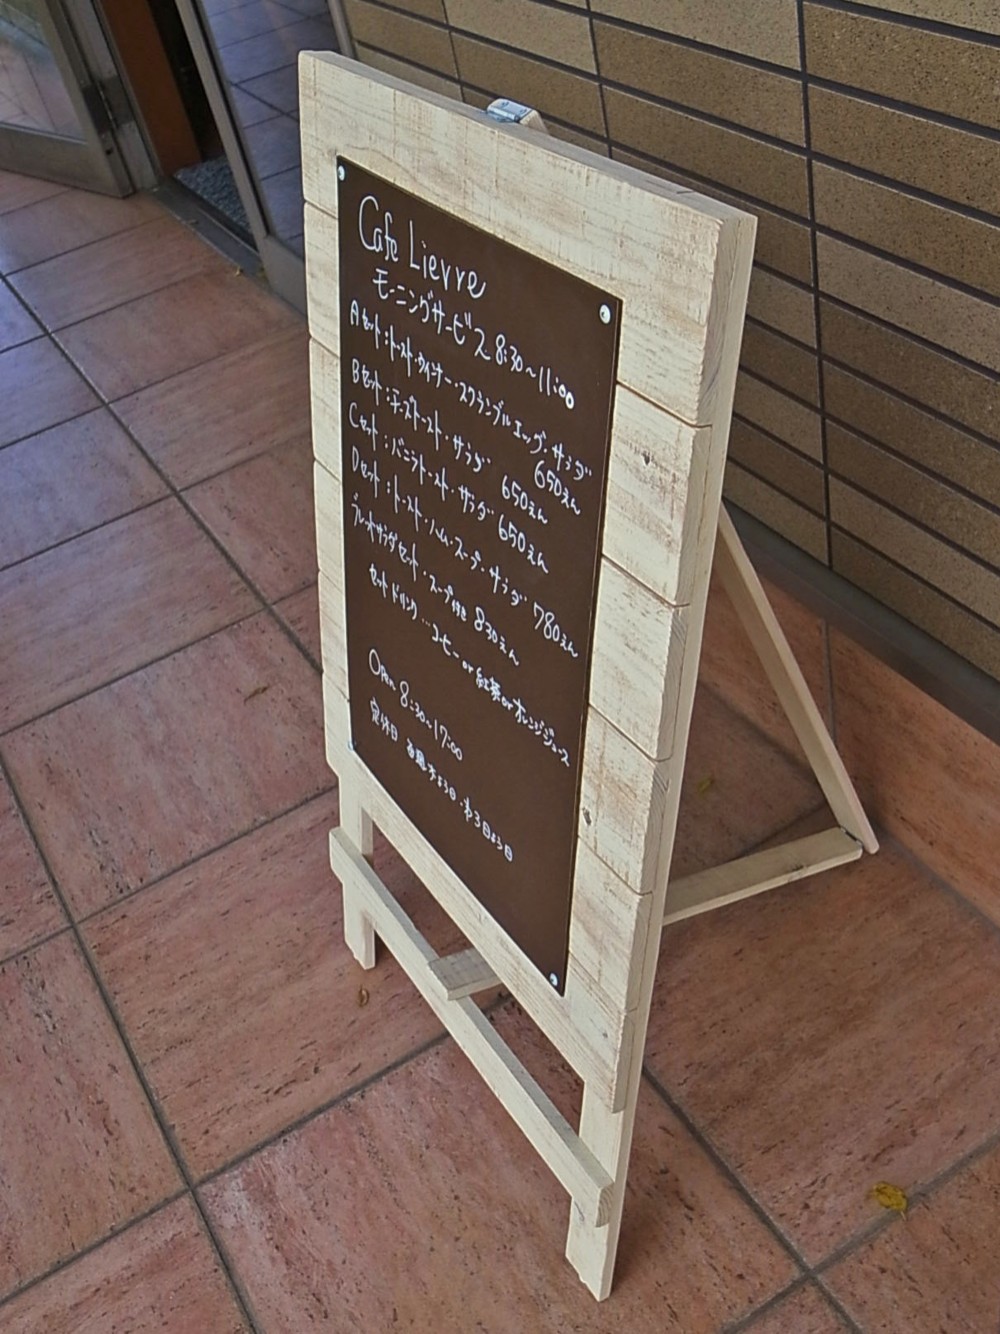 Cafe Lievre
モーニングサービス 8:30〜11:00
Aセット:トースト・ウインナー・スクランブルエッグ・サラダ
650えん
Bセット:チーズトースト・サラダ 650えん
Cセット:バニラトースト・サラダ 650えん
Dセット:トースト・ハム・スープ・サラダ 780えん
サラダセット・スープ付き 830えん
セットドリンク…コーヒー or 紅茶 or オレンジジュース
Open 8:30〜17:00
定休日 毎週 ・第3日よう日